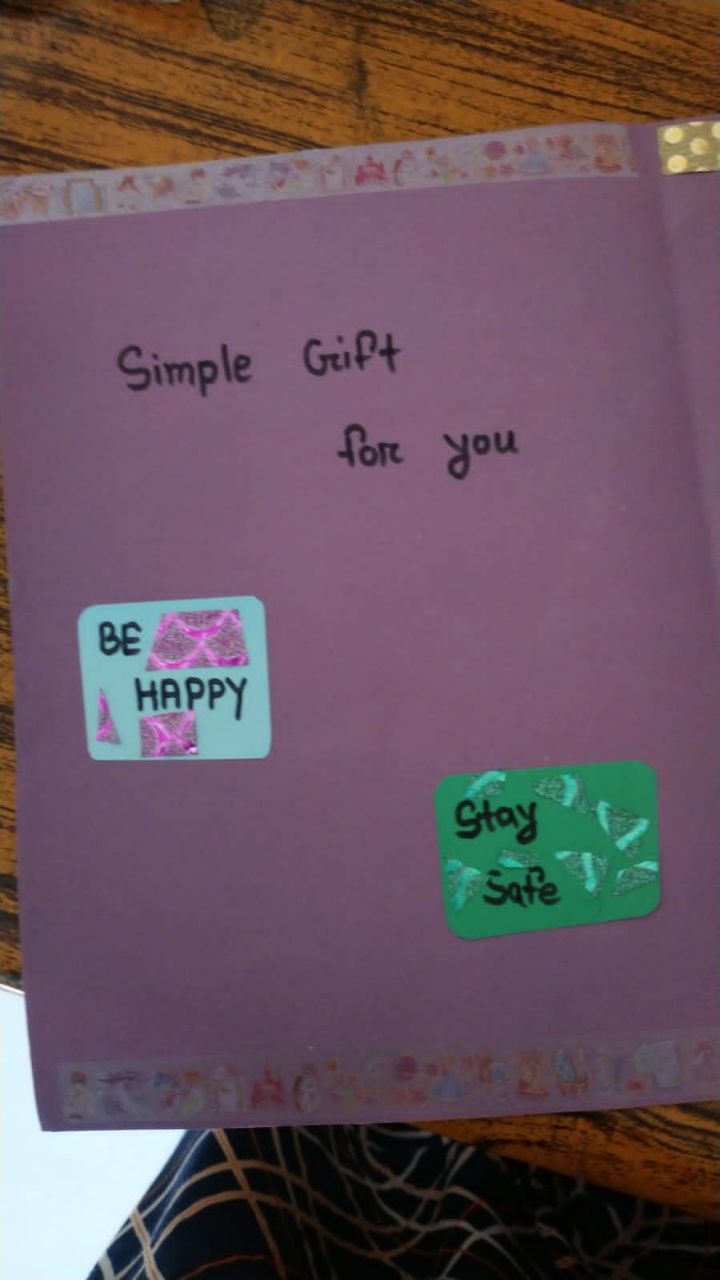 Simple Gift
for you
BE
HAPPY
Stay
Safe